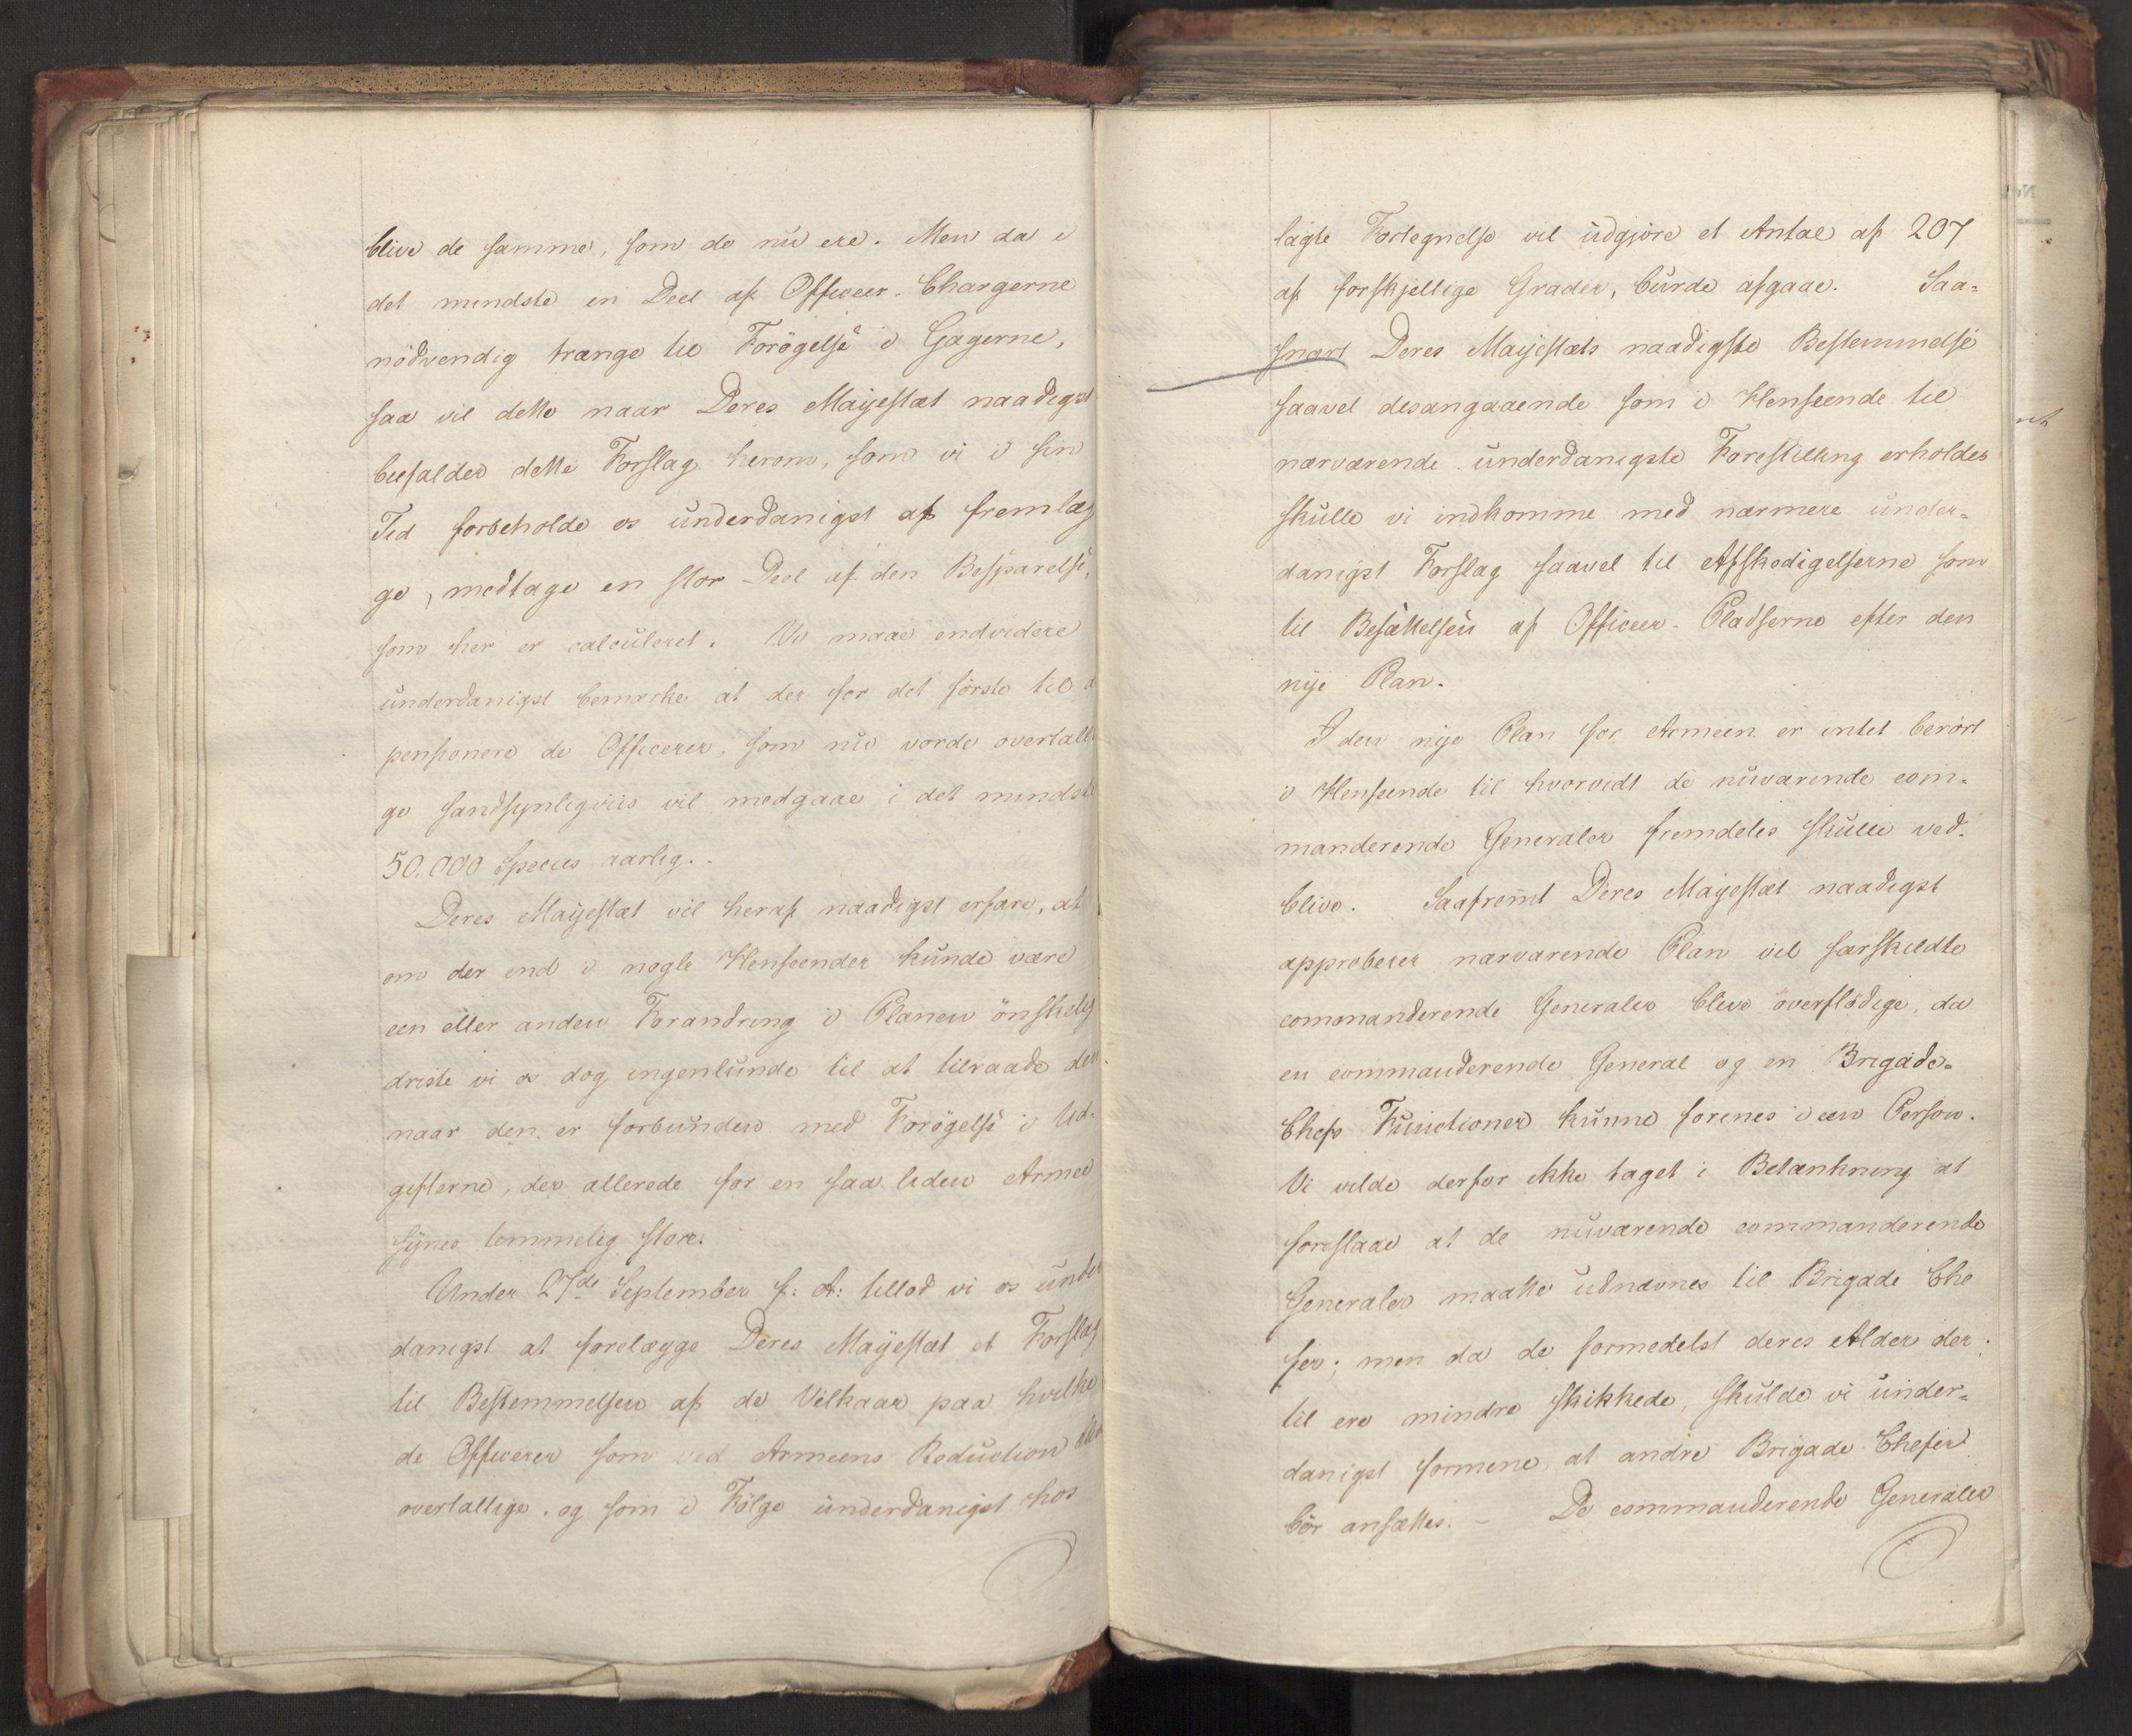 blive de samme, som de nu ere. Men da i
det mindste en Deel af Officeer-Chargerne
nödvendig trænge til Forögelse i Gagerne,
saa vil dette naar Deres Majestæt naadigst
befalder dette Forslag herom, som vi i sin
Tid forbeholde os underdanigst at fremlæg
ge, medtage en stor Deel af den Besparelse,
som her er calculeret. Vi maae endvidere
underdanigst bemærke at der for det förste til a
pensionere de Officerer, som nu vorde overtalli
ge sandsynligviis vil medgaae i det mindste
50.000 Species aarlig.-
Deres Majestæt vil heraf naadigst erfare, at
om der end i nogle Henseender kunde være
een eller anden Forandring i Planen önskelig
driste vi os dog ingenlunde til at tilraade den
naar den er forbunden med Forögelse i Ud-
gifterne, der allerede for en saa liden Armee
synes temmelig store.
Under 27de September f: A: tillod vi os under
danigst at forelægge Deres Majestæt et Forslag
til Bestemmelsen af de Vilkaar paa hvilke
de Officerer som ved Armeens Reduction blive
overtallige, og som i Fölge underdanigst hos
lagte Fortegnelse vil udgjöre et Antal af 207
af forskjellige Grader, burde afgaae. Saa-
snart Deres Majestæts naadigste Bestemmelse
saavel desangaaende som i Henseende til
nærværende underdanigste Forestilling erholdes
skulle vi indkomme med nærmere under-
danigst Forslag saavel til Afskedigelserne som
til Besættelsen af Officeer-Pladserne efter den
nye Plan.
I den nye Plan for Armeen er intet berört
i Henseende til hvorvidt de nuværende com-
manderende Generaler fremdeles skulle ved-
blive. Saafremt Deres Majestæt naadigst
approberer nærværende Plan vil særskildte
commanderende Generaler blive overflödige, da
en commanderende General og en Brigade-
Chefs Functioner kunne forenes i een Person.
Vi vilde derfor ikke taget i Betænkning at
foreslaae at de nuværende commanderende
Generaler maatte udnævnes til Brigade Che
fer; men da de formedelst deres Alder der-
til ere mindre skikkede, skulde vi under-
danigst formene at andre Brigade Chefer
bör ansættes. - De commanderende Generaler